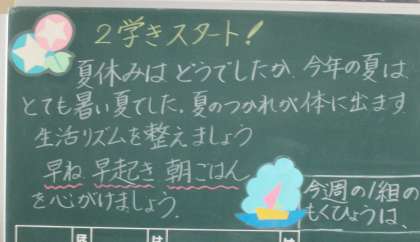 2学きスタート!
夏休みは どうでしたか. 今年の夏は
とても暑い夏でした. 夏のつかれが体に出ます
生活リズムを整えましょう
早ね 早起き 朝ごはん
を心がけましょう.
今週の1組の
もくひょうは、